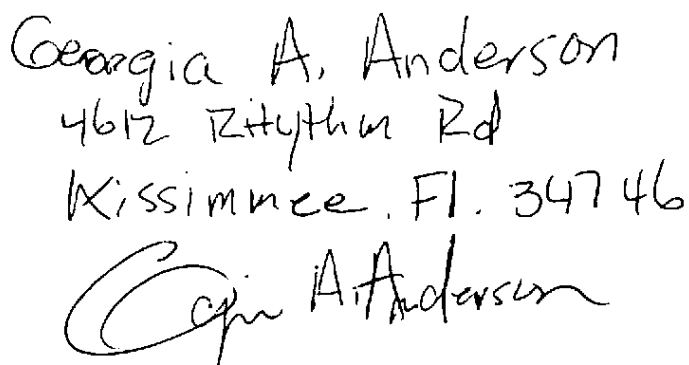 Georgia A. Anderson
4612 Rhythm Rd
Kissimmee, Fl. 34746
A. Anderson